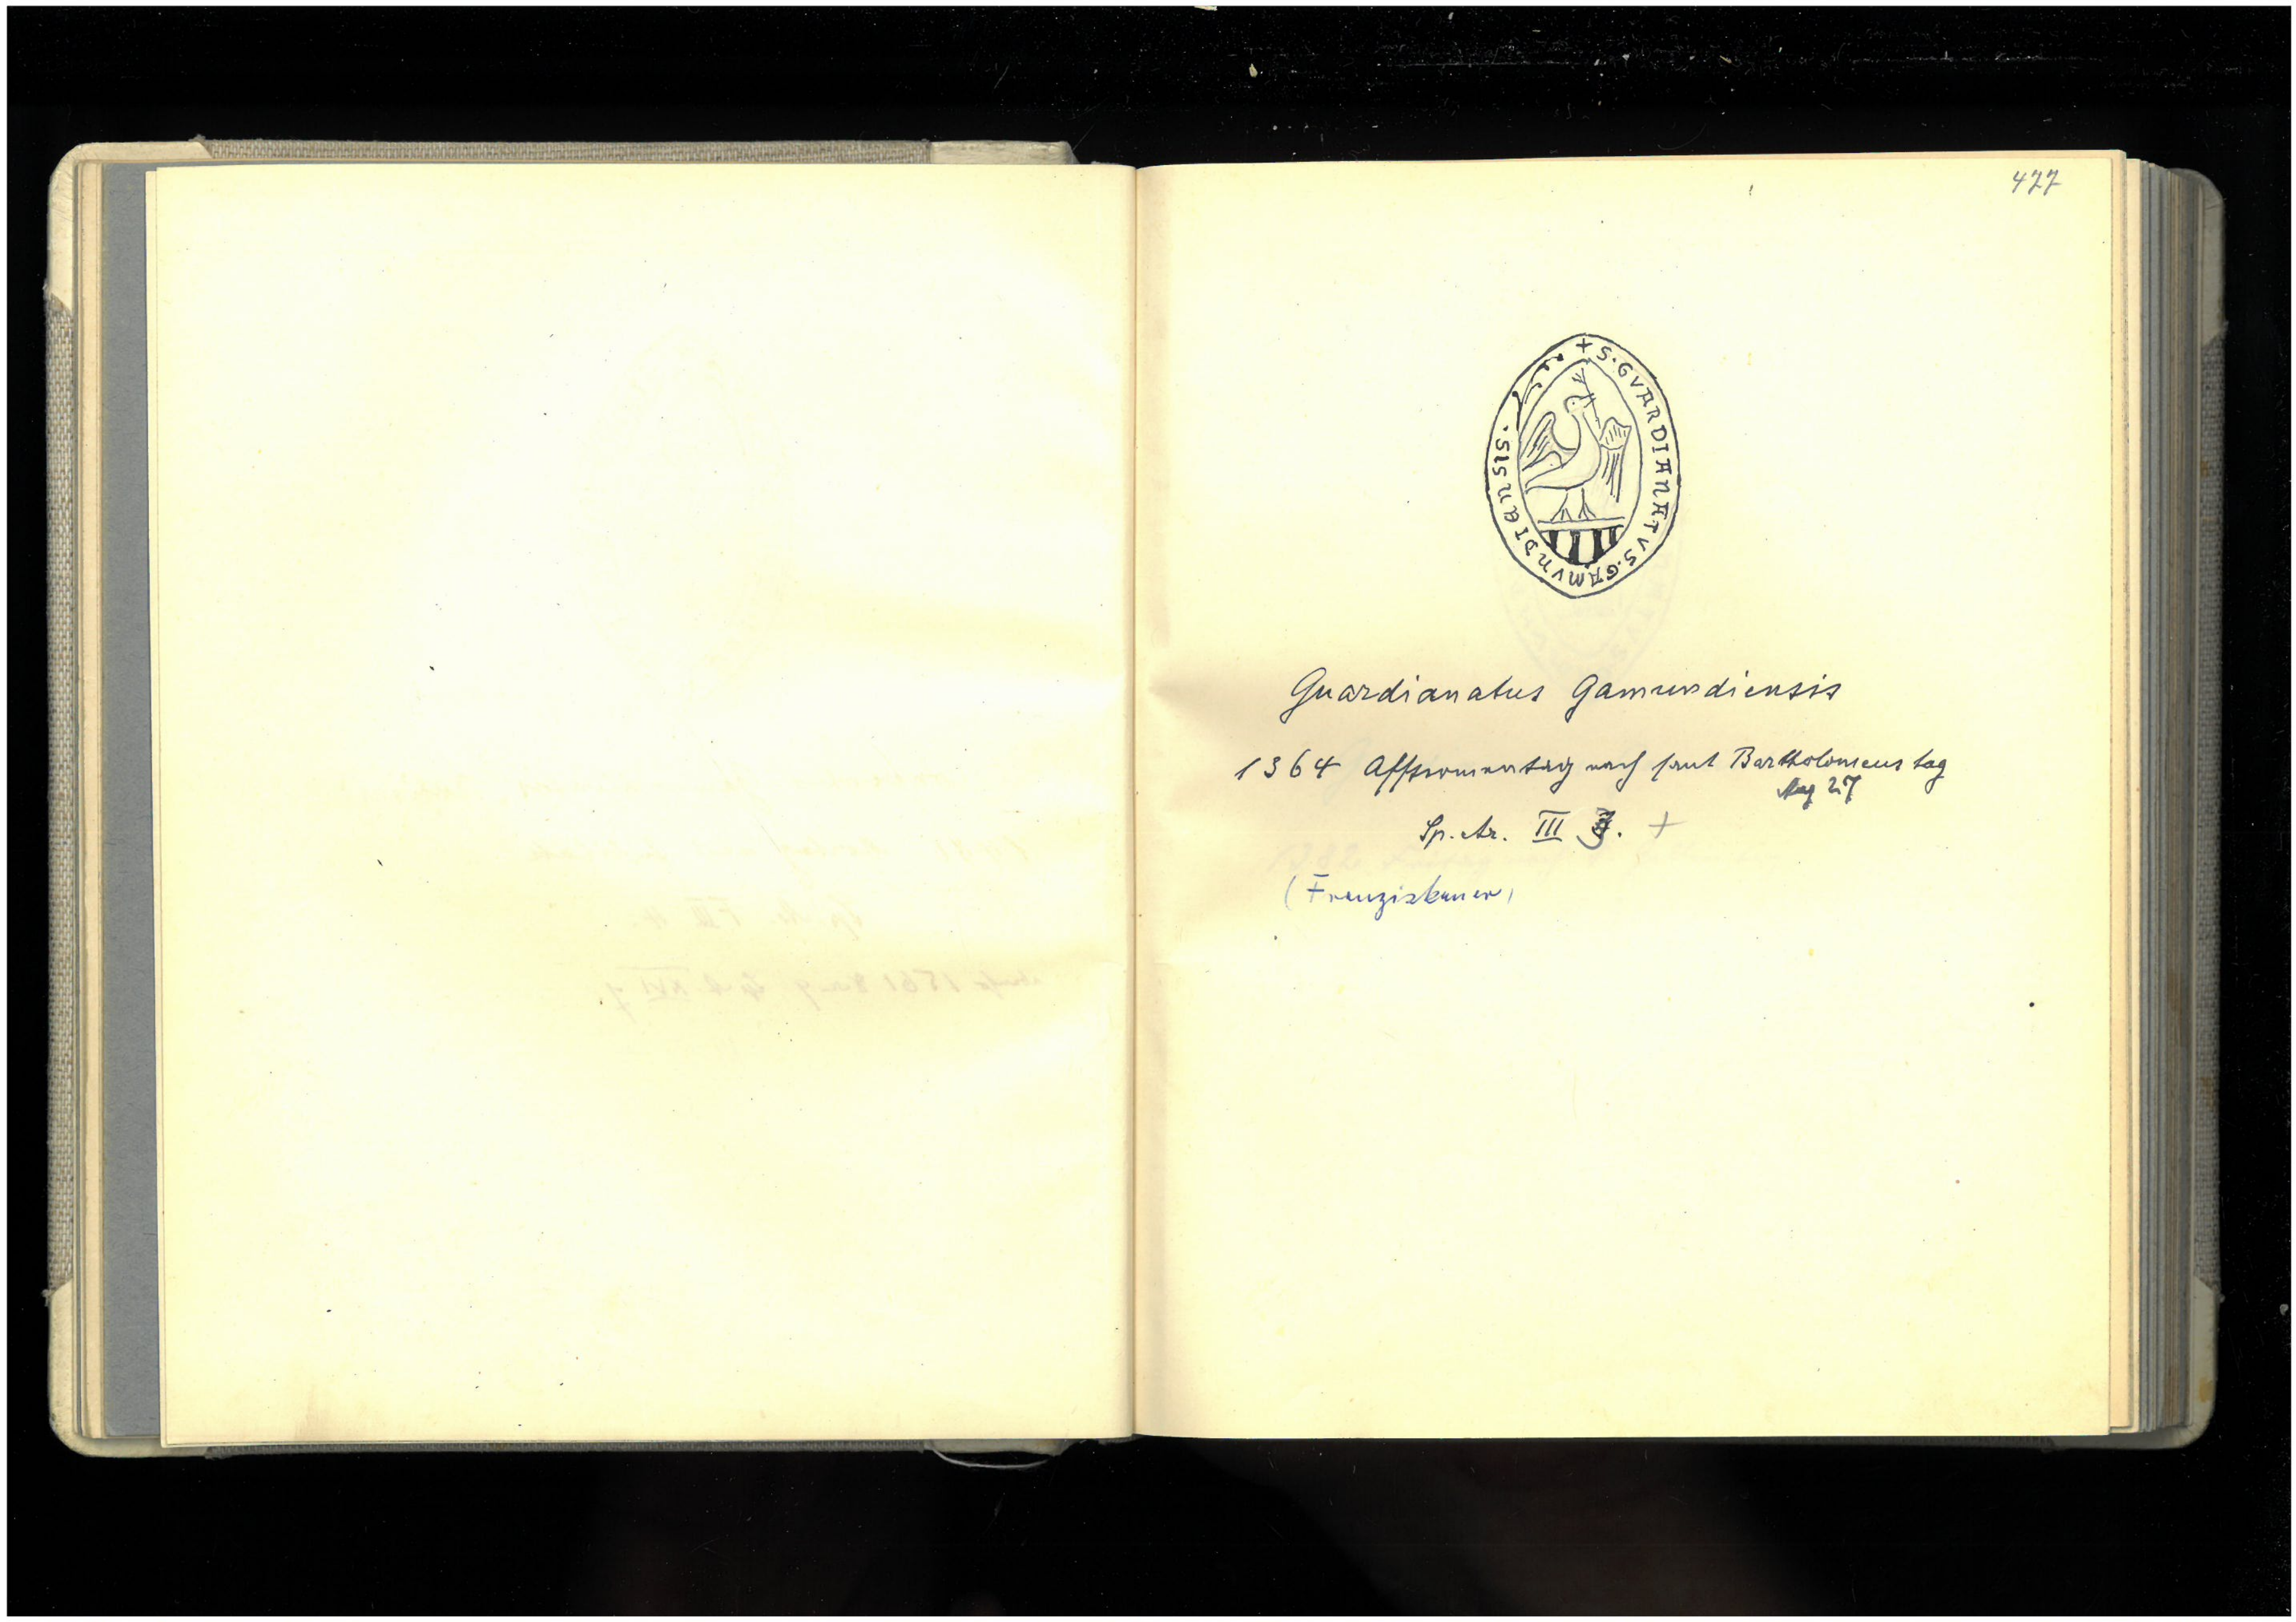 477
+ S. GVARDIANATVS. GAMVNDIENSIS.
Guardianatus Gamundiensis
1364 Afftermentag nach sant Bartholomeus tag
Aug 27
Sp. Ar. III 3. +
(Franziskaner)